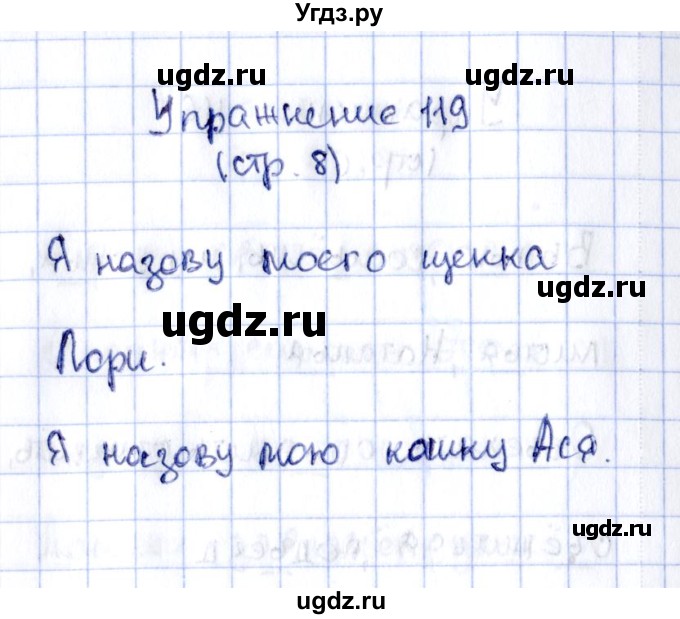 Угдз.ру
ugdz.ru ugdz.ru
Упражнение 119
(стр. 8)
Я назову моего щенка
ugdz.ru
ugdz.ru
Лори.
Я назову мою кошку Ася.
ugdz.ru
ugdz.ru